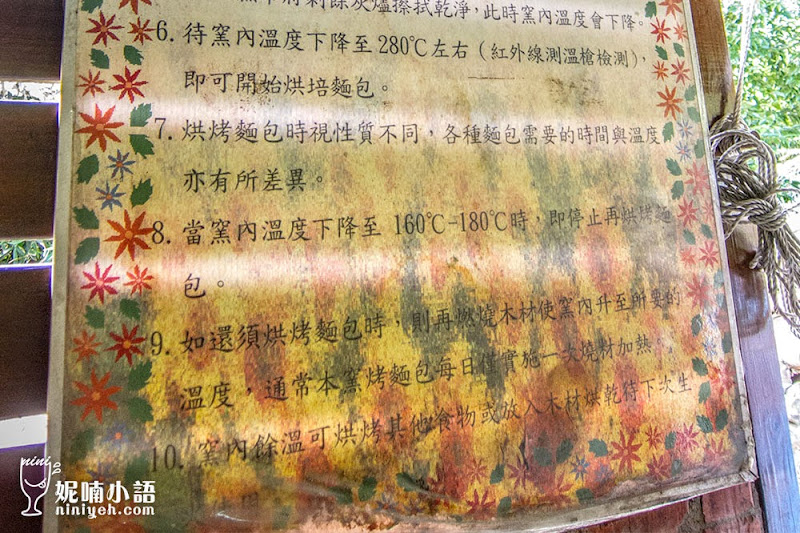 將剩餘灰燼擦拭乾淨，此時窯內溫度會下降。
6. 待窯內溫度下降至280℃左右（紅外線測溫槍檢測），
即可開始烘培麵包。
7. 烘烤麵包時視性質不同，各種麵包需要的時間與溫度
亦有所差異。
8. 當窯內溫度下降至 160℃-180℃時，即停止再烘烤麵
包。
9. 如還須烘烤麵包時，則再燃燒木材使窯內升至所要的
溫度，通常本窯烤麵包每日僅實施一次燒材加熱。
10. 窯內餘溫可烘烤其他食物或放入木材烘乾待下次生
nini
妮喃小語
niniyeh.com